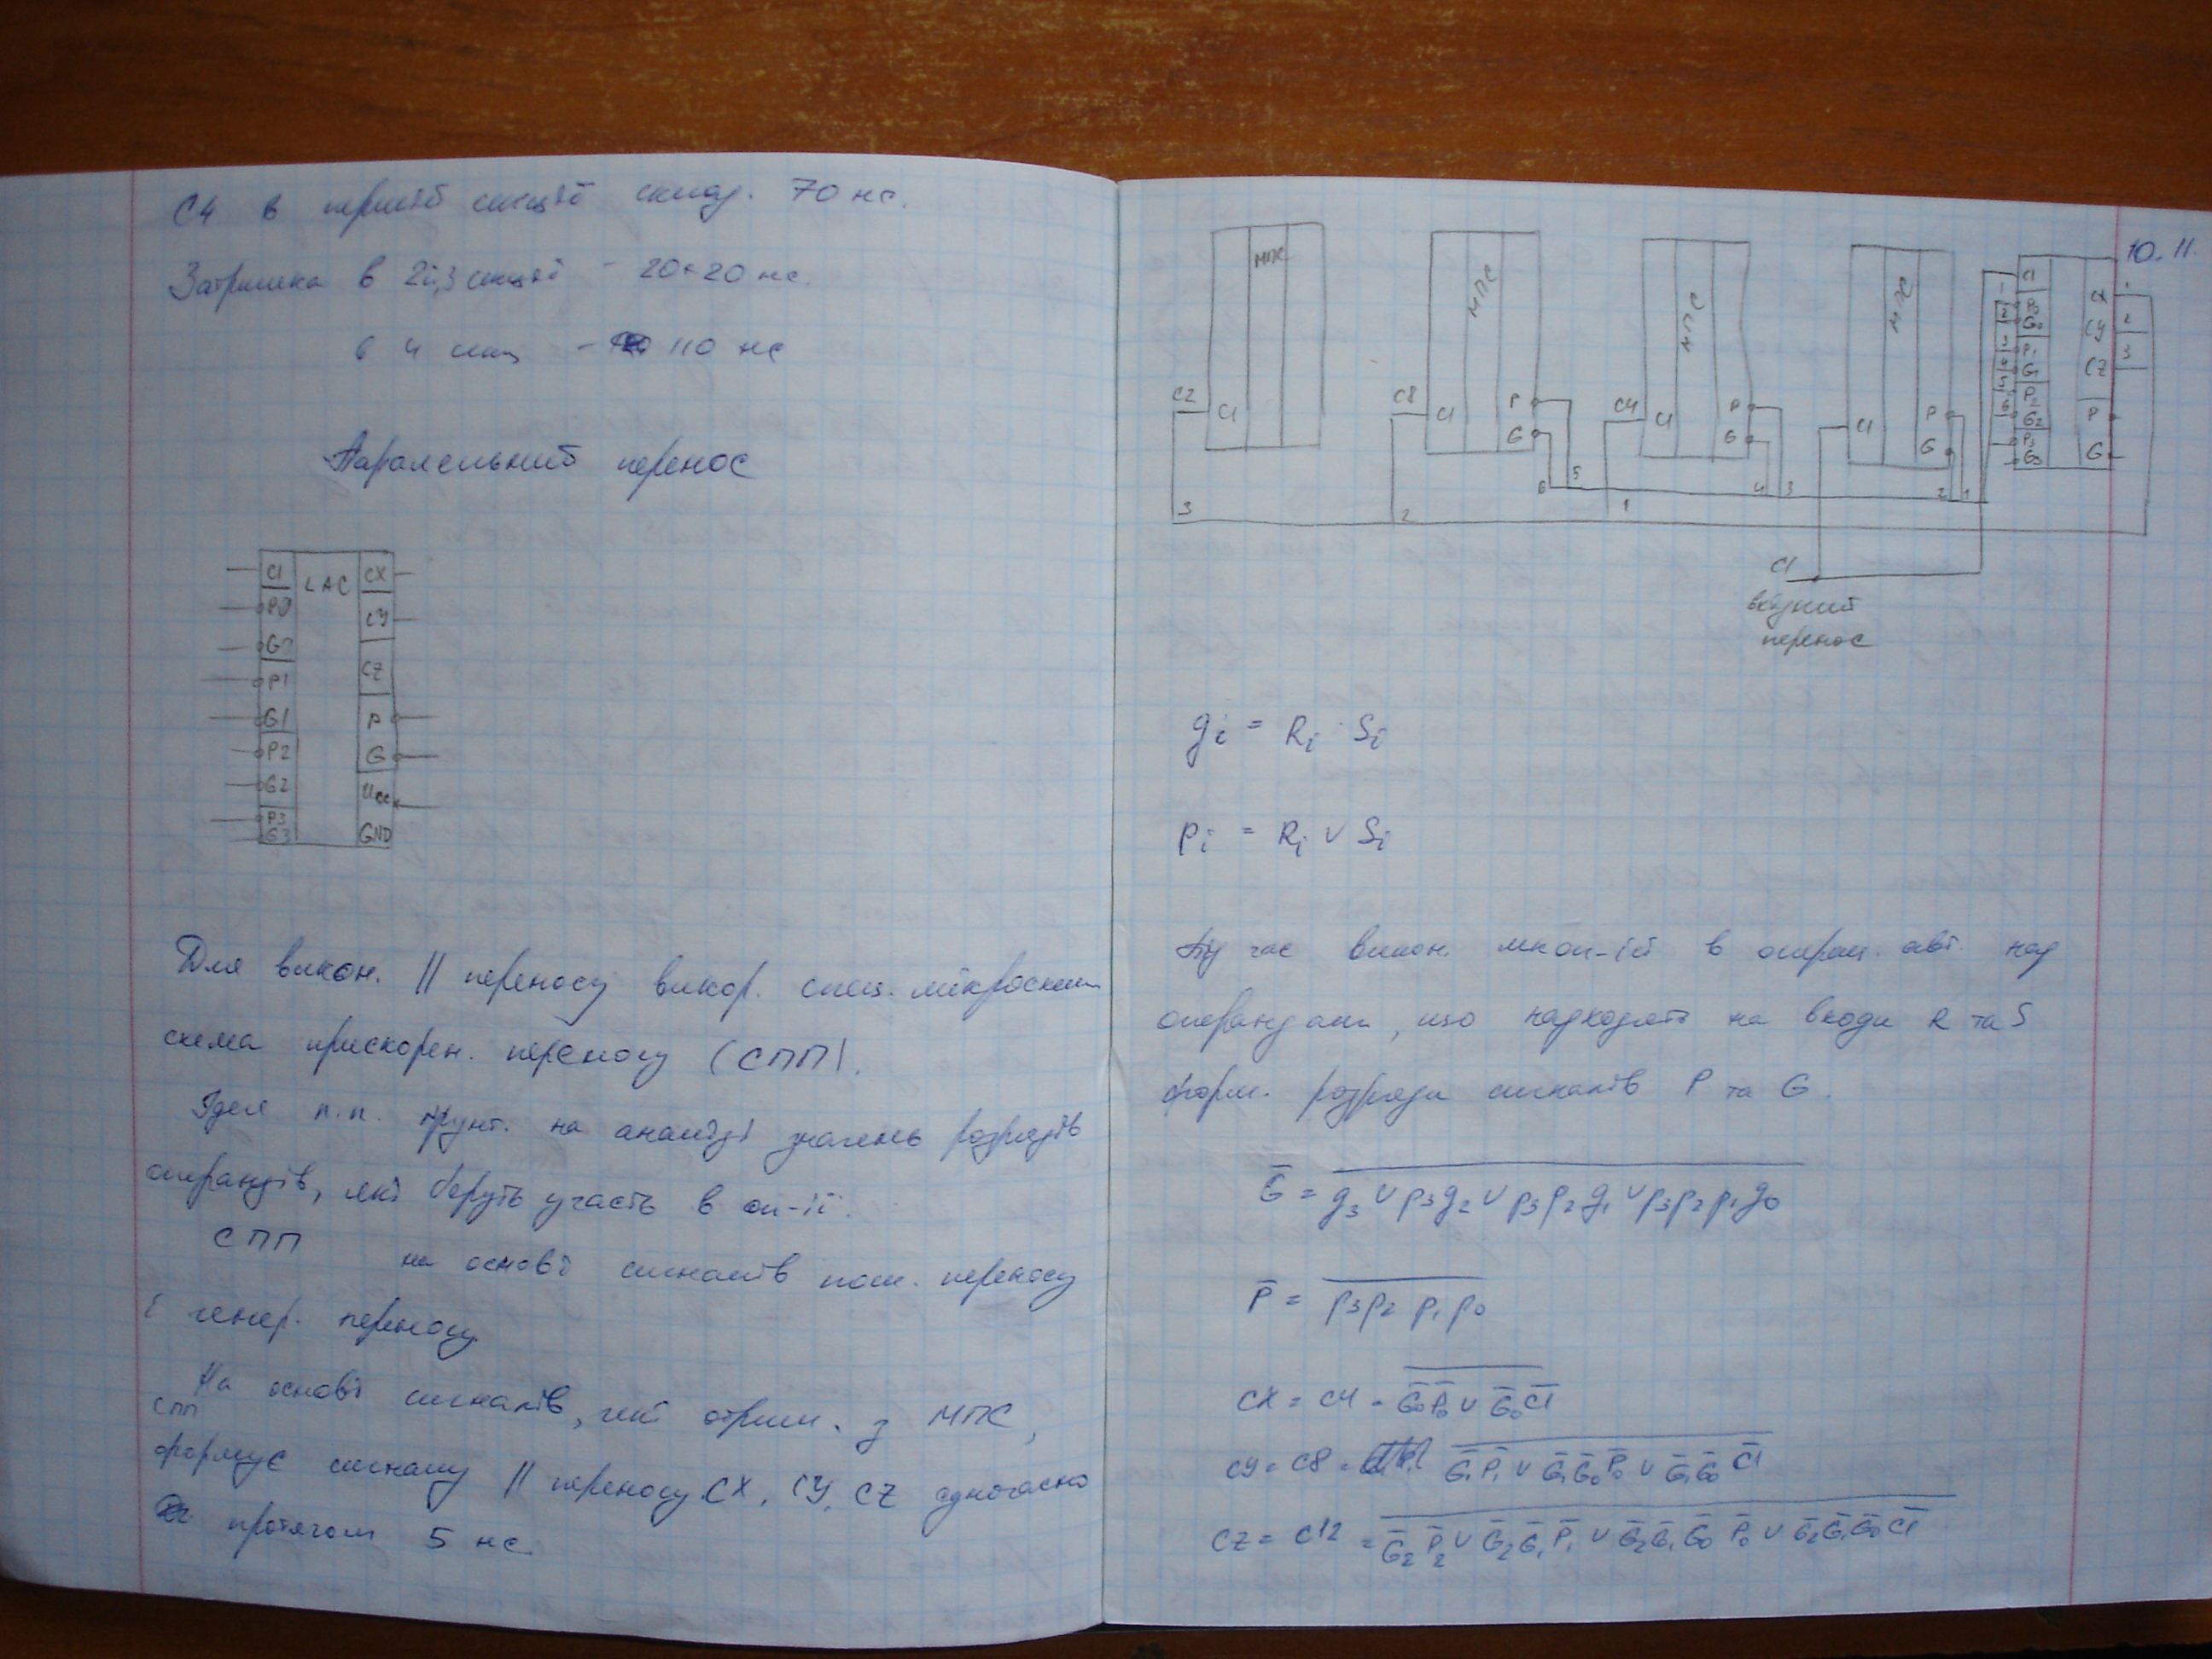 С4 в першій секції склад. 70 нс.
Затримка в 2й,3 секції - 20+20 нс.
в 4 секц - 110 нс
Паралельний перенос
CI LAC CX
P0 CY
G0
P1 CZ
G1 P
P2 G
G2 Ucc
P3
G3 GND
Для викон. || переносу викор. спец. мікросхема
схема прискорен. переносу (СПП).
Ідея п.п. ґрунт. на аналізі значень розрядів
операндів, які беруть участь в оп-ії.
СПП на основі сигналів пош. переносу
і генер. переносу
На основі сигналів, які отрим. з МПС,
СПП
формує сигнали || переносу CX, CY, CZ одночасно
протягом 5 нс
10.11.
МПС МПС МПС МПС
CI CX 1
P0 G0 CY 2
P1 G1 CZ 3
P2 G2 P
P3 G3 G
CZ CI C8 CI P G C4 CI P G CI P G
3 2 6 5 1 4 3 2 1
CI
вхідний
перенос
gi = Ri · Si
pi = Ri ∨ Si
Під час викон. мкоп-ій в операц. авт. над
операндами, що надходять на входи R та S
форм. розряди сигналів P та G.
G̅ = \overline{g₃ ∨ p₃g₂ ∨ p₃p₂g₁ ∨ p₃p₂p₁g₀}
P̅ = \overline{p₃p₂p₁p₀}
CX = C4 = \overline{G̅₀P̅₀ ∨ G̅₀C̅I̅}
CY = C8 = \overline{G̅₁P̅₁ ∨ G̅₁G̅₀P̅₀ ∨ G̅₁G̅₀C̅I̅}
CZ = C12 = \overline{G̅₂P̅₂ ∨ G̅₂G̅₁P̅₁ ∨ G̅₂G̅₁G̅₀P̅₀ ∨ G̅₂G̅₁G̅₀C̅I̅}